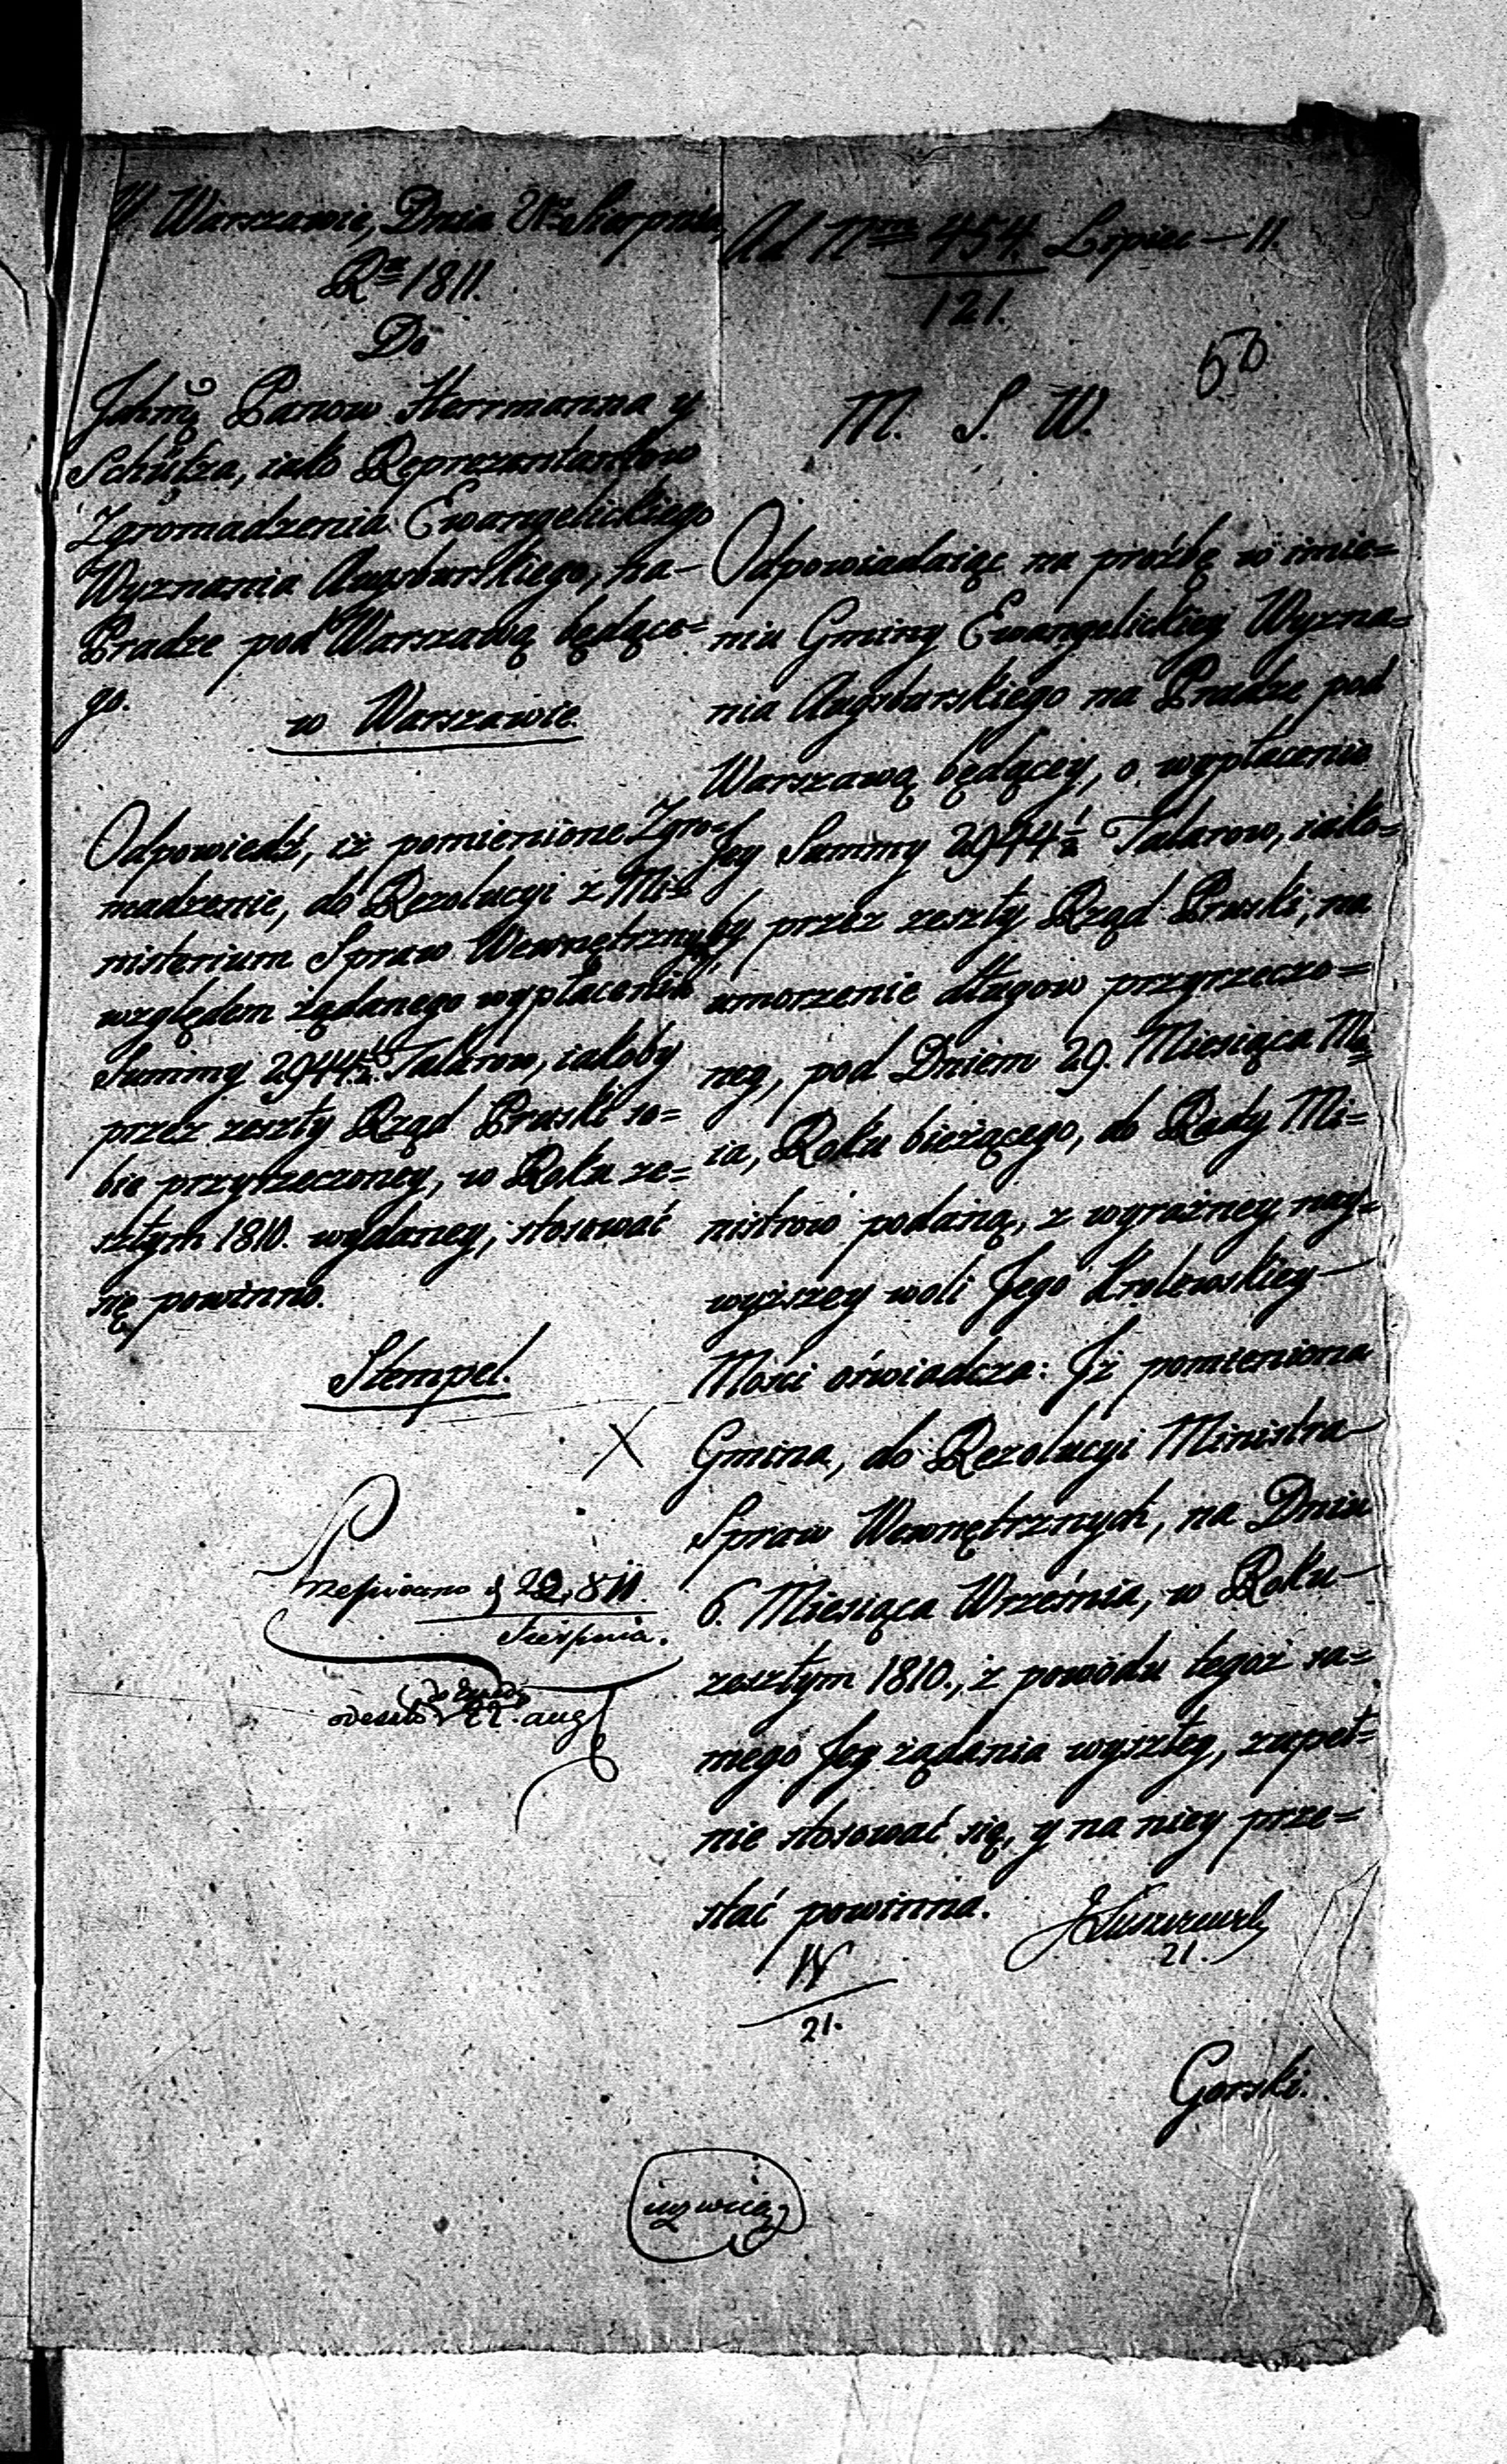 W Warszawie, Dnia Sierpnia,
Ra 1811.
Do
Panow Herrmanna y
Schütza, iako Reprezentantow
Zgromadzenia Ewangelickiego
Wyznania Augsburskiego, na
Pradze pod Warszawą będące=
go.
w Warszawie.
Odpowiedź, iż pomienione Zgro=
madzenie, do Rezolucyi z Mi=
nisterium Spraw Wewnętrznych,
względem żądanego wypłacenia
Summy 2944½. Talarow, iakoby
przez zeszły Rząd Pruski so=
bie przyrzeczoney, w Roku ze=
szłym 1810. wydaney, stosować
się powinno.
Stempel.
Przepisano d 22. 811.
Sierpnia.
22. aug
Ad Nrm 454. Lipiec — 11.
121.
50
M. S. W.
Odpowiadaiąc na proźbę w imie=
niu Gminy Ewangelickiey Wyzna=
nia Augsburskiego na Pradze pod
Warszawą będącey, o wypłacenie
Jey Summy 2944½ Talarow, iako=
by przez zeszły Rząd Pruski, na
umorzenie długow przyrzeczo=
ney, pod Dniem 29. Miesiąca Ma=
ia, Roku bieżącego, do Rady Mi=
nistrow podaną, z wyraźney nay=
wyższey woli Jego Krolewskiey
Mości oświadcza: Iż pomieniona
Gmina, do Rezolucyi Ministra
Spraw Wewnętrznych, na Dniu
6. Miesiąca Września, w Roku
zeszłym 1810., z powodu tegoż sa=
mego Jey żądania wyszłey, zupeł=
nie stosować się, y na niey prze=
stać powinna.
21.
W
21.
Gorski.